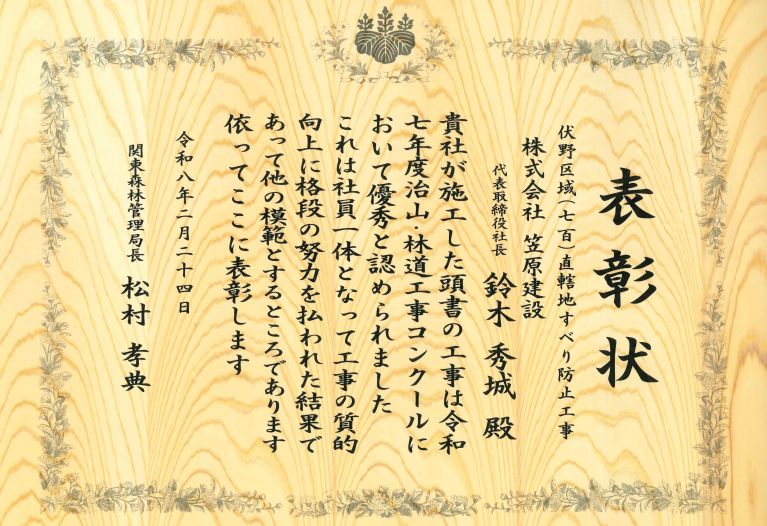 表彰状
伏野区域(七百)直轄地すべり防止工事
株式会社 笠原建設
代表取締役社長 鈴木 秀城 殿
貴社が施工した頭書の工事は令和
七年度治山・林道工事コンクールに
おいて優秀と認められました
これは社員一体となって工事の質的
向上に格段の努力を払われた結果で
あって他の模範とするところであります
依ってここに表彰します
令和八年二月二十四日
関東森林管理局長 松村 孝典